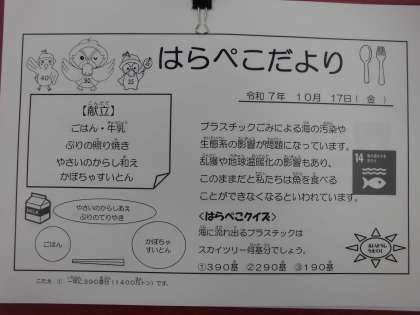 はらぺこだより
令和7年 10月 17日(金)
【献立】
ごはん・牛乳
ぶりの照り焼き
やさいのからし和え
かぼちゃすいとん
プラスチックごみによる海の汚染や
生態系の影響が問題になっています。
乱獲や地球温暖化の影響もあり、
このままだと私たちは魚を食べる
ことができなくなるといわれています。
14
やさいのからしあえ
ぶりのてりやき
ごはん
かぼちゃ
すいとん
<はらぺこクイズ>
海に流れ出るプラスチックは
スカイツリー何基分でしょう。
①390基 ②290基 ③190基
こたえ:① 一年に390基分(1400万トン)です。